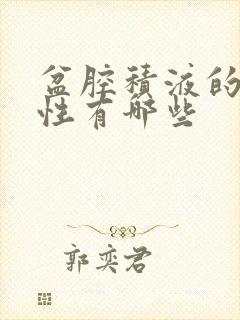 盆腔積液的
性有哪些
郭奕君